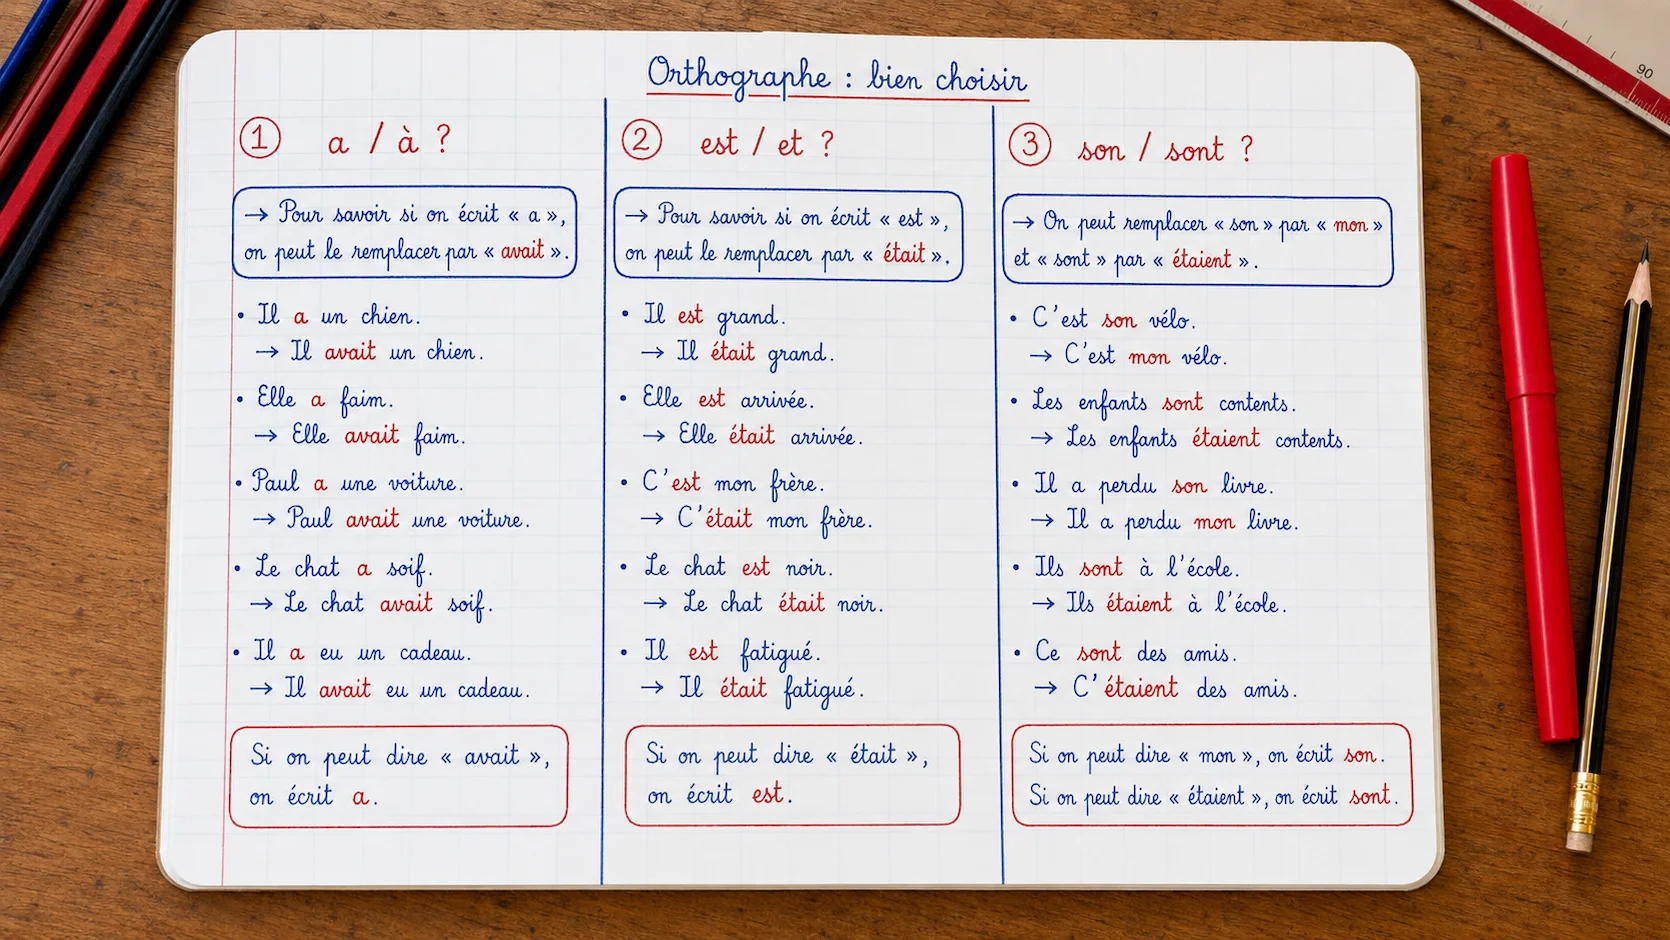 Orthographe : bien choisir
① a / à ?
→ Pour savoir si on écrit « a »,
on peut le remplacer par « avait ».
• Il a un chien.
→ Il avait un chien.
• Elle a faim.
→ Elle avait faim.
• Paul a une voiture.
→ Paul avait une voiture.
• Le chat a soif.
→ Le chat avait soif.
• Il a eu un cadeau.
→ Il avait eu un cadeau.
Si on peut dire « avait »,
on écrit a.
② est / et ?
→ Pour savoir si on écrit « est »,
on peut le remplacer par « était ».
• Il est grand.
→ Il était grand.
• Elle est arrivée.
→ Elle était arrivée.
• C'est mon frère.
→ C'était mon frère.
• Le chat est noir.
→ Le chat était noir.
• Il est fatigué.
→ Il était fatigué.
Si on peut dire « était »,
on écrit est.
③ son / sont ?
→ On peut remplacer « son » par « mon »
et « sont » par « étaient ».
• C'est son vélo.
→ C'est mon vélo.
• Les enfants sont contents.
→ Les enfants étaient contents.
• Il a perdu son livre.
→ Il a perdu mon livre.
• Ils sont à l'école.
→ Ils étaient à l'école.
• Ce sont des amis.
→ C'étaient des amis.
Si on peut dire « mon », on écrit son.
Si on peut dire « étaient », on écrit sont.
90